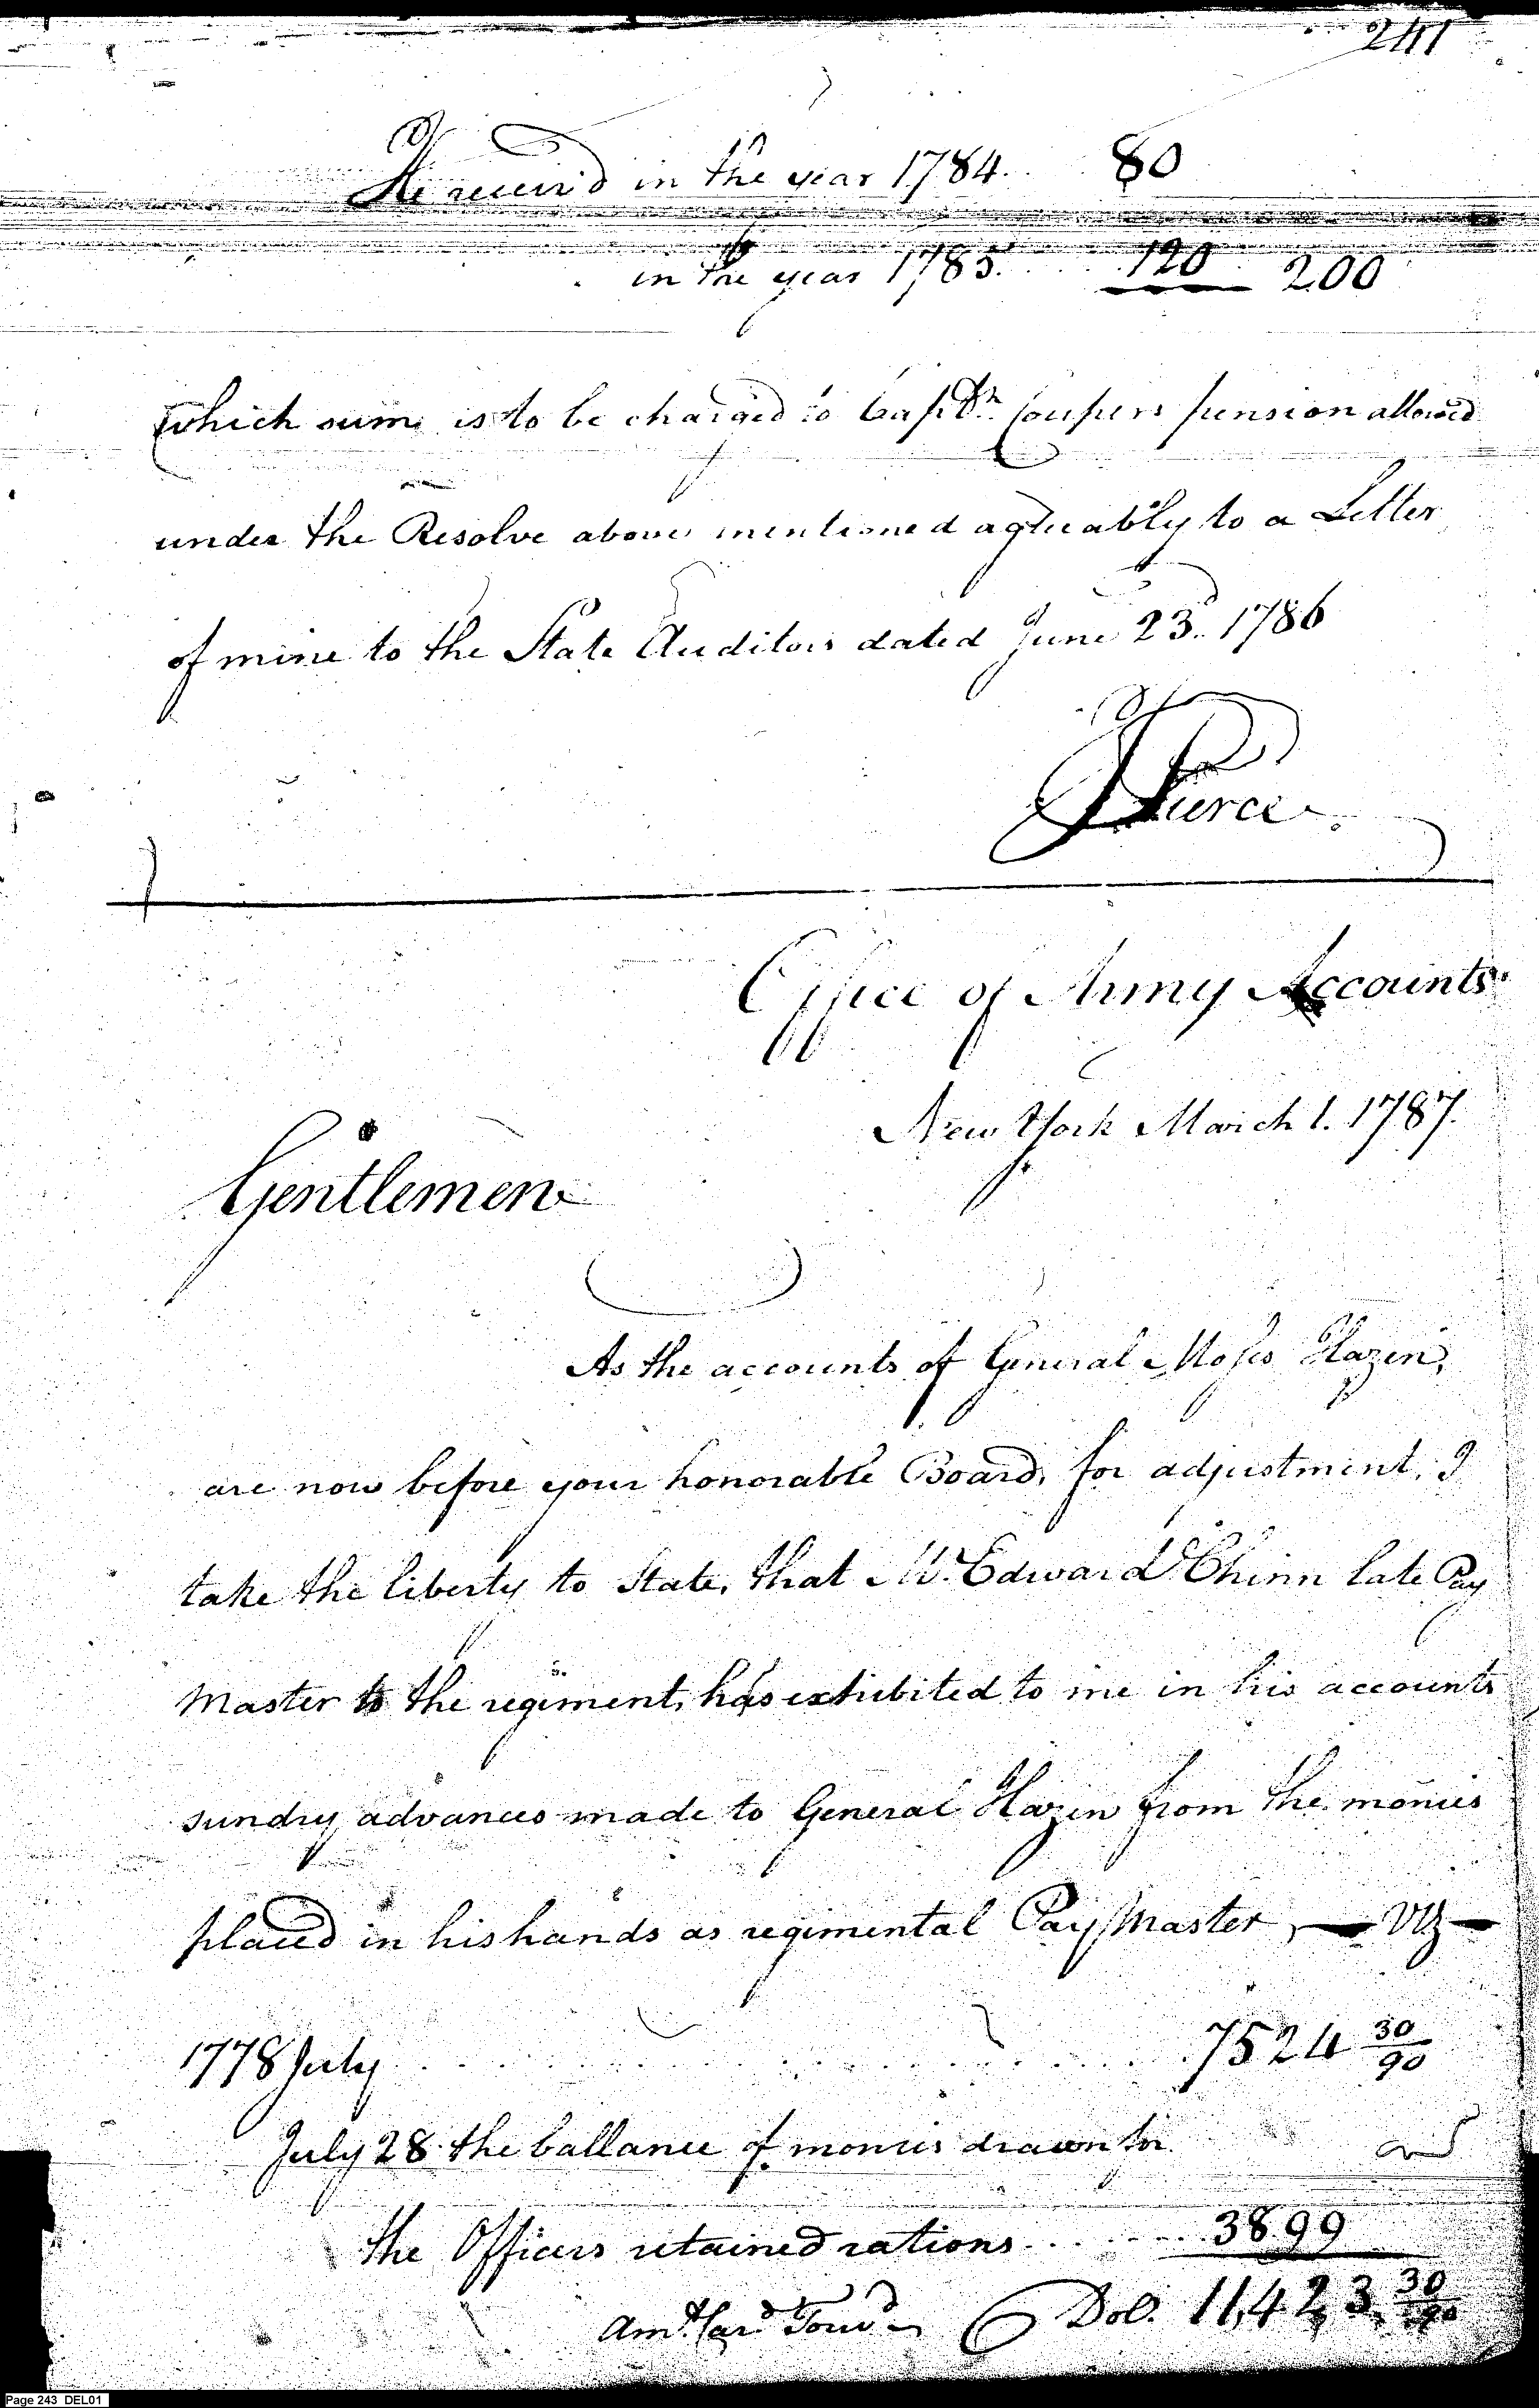 241
He receiv'd in the year 1784 .. 80
in the year 1785 .... 120 200
which sum is to be charged to Capt.n Coupers pension allowed
under the Resolve above mentioned agreeably to a Letter
of mine to the State Auditors dated June 23d. 1786
J Pierce
Office of Army Accounts
New York March 1. 1787.
Gentlemen
As the accounts of General Moses Hazen,
are now before your honorable Board, for adjustment, I
take the liberty to State, that Mr. Edward Chinn late Pay
Master to the regiment, has exhibited to me in his accounts
sundry advances made to General Hazen from the monies
placed in his hands as regimental Pay Master, — Viz —
1778 July ............ 7524 30/90
July 28. the ballance of monies drawn for
the Officers retained rations ...... 3899
Amt. Card. Forwd. Dol. 11,423 30/90
Page 243 DEL01